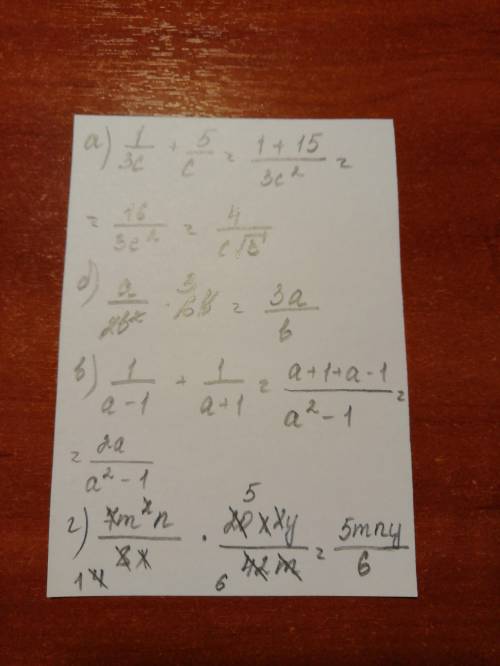 а) 1/3c + 5/c = (1+15)/3c² =
= 16/3c² = 4/(c√3)
б) a/2b² · 6b = 3a/b
3
в) 1/(a-1) + 1/(a+1) = (a+1+a-1)/(a²-1) =
= 2a/(a²-1)
5
г) 7m²n/(8x) · 20x²y/(42m) = 5mny/6
1 4 6